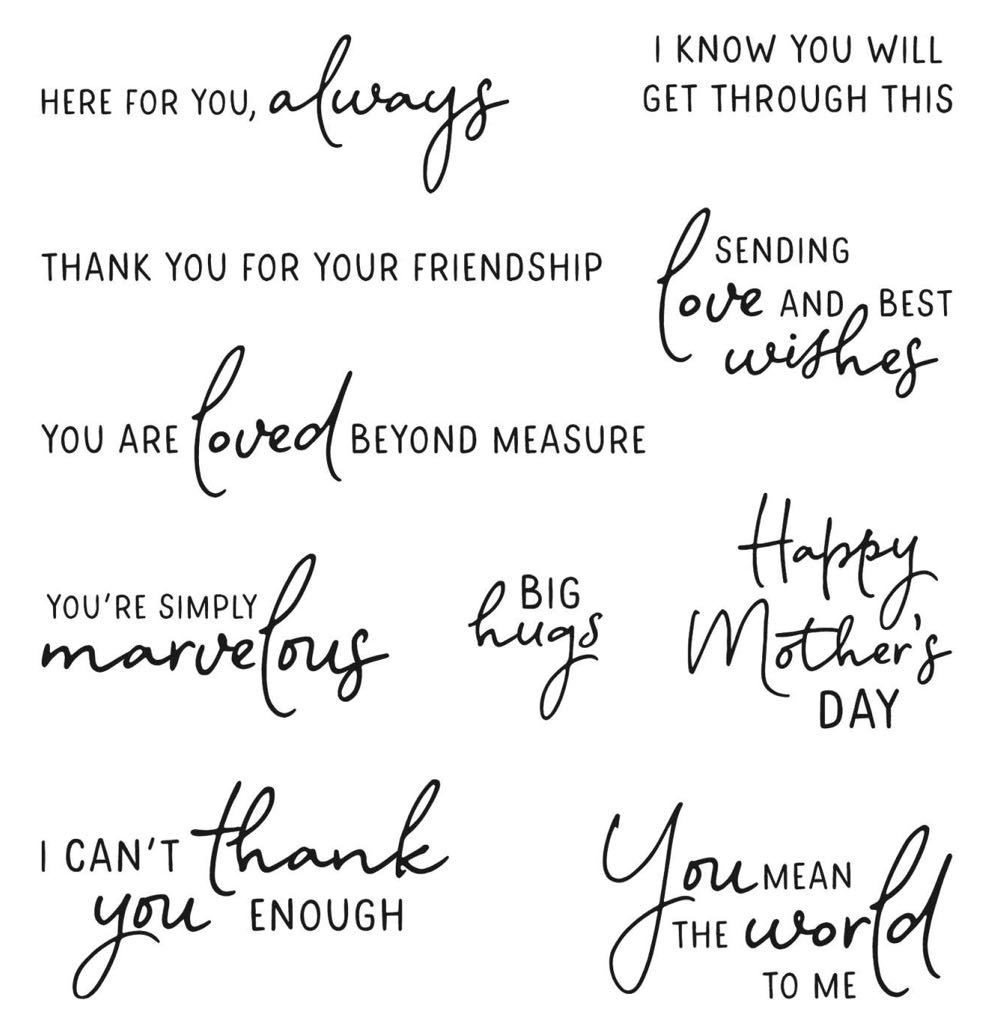 HERE FOR YOU, always
I KNOW YOU WILL
GET THROUGH THIS
THANK YOU FOR YOUR FRIENDSHIP
SENDING
love AND BEST
wishes
YOU ARE loved BEYOND MEASURE
YOU'RE SIMPLY
marvelous
BIG
hugs
Happy
Mother's
DAY
I CAN'T thank
you ENOUGH
You MEAN
THE world
TO ME